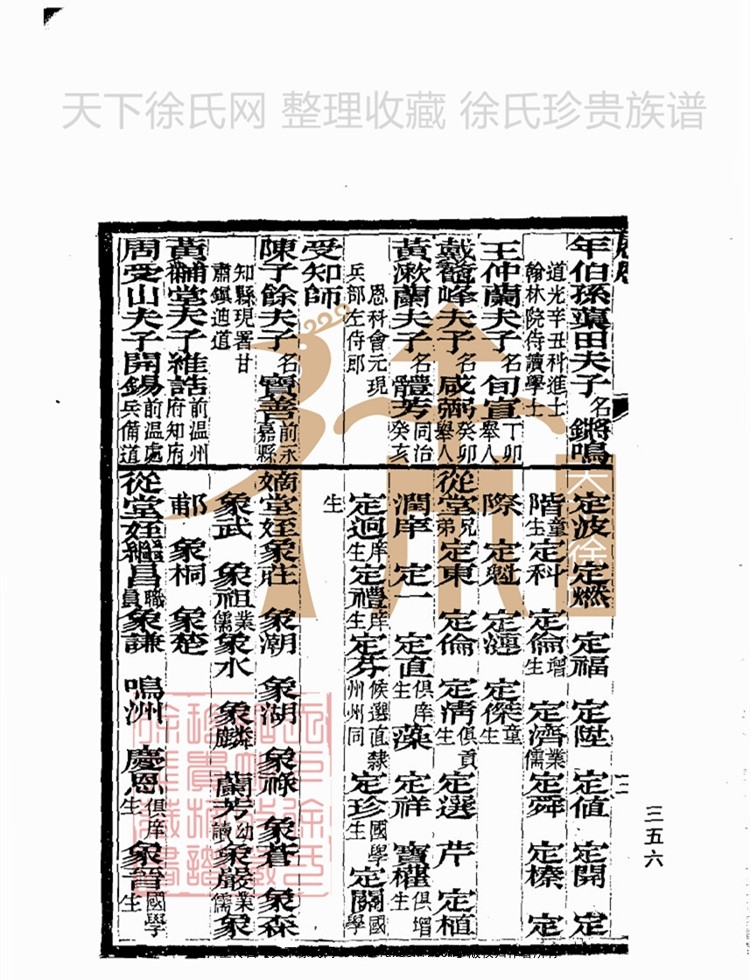 天下徐氏网 整理收藏 徐氏珍贵族谱
年伯孫蕖田夫子名鏘鳴
道光辛丑科進士
翰林院侍讀學士
王仲蘭夫子名旬宣丁卯舉人
戴鼇峰夫子名咸弼癸卯舉人
黃漱蘭夫子名體芳同治癸亥
恩科會元現
兵部左侍郎
受知師
陳子餘夫子名寶善前永嘉縣
知縣現署甘
肅鎮迪道
黃補堂夫子維誥前温州府知府
周受山夫子開錫前温處兵備道
定波 定燃 定福 定陞 定值 定開 定
階童生定科 定倫增生 定濟業儒定舜 定榛 定
際 定魁 定漣 定傑童生
從堂兄弟定東 定倫 定清俱貢生 定選 芹 定植
潤岸 定一 定直俱庠生 藻 定祥 寶權俱增生
定迥庠生定禮庠生定芬候選直隸州州同 定珍國學生 定關國學
生
嫡堂姪象莊 象潮 象湖 象祿 象蒼 象森
象武 象祖業儒象水 象麟 蘭芳幼讀象嚴業儒象
郙 象桐 象楚
從堂姪繼昌職員象謙 鳴洲 慶恩俱庠生 象晉國學生
三五六